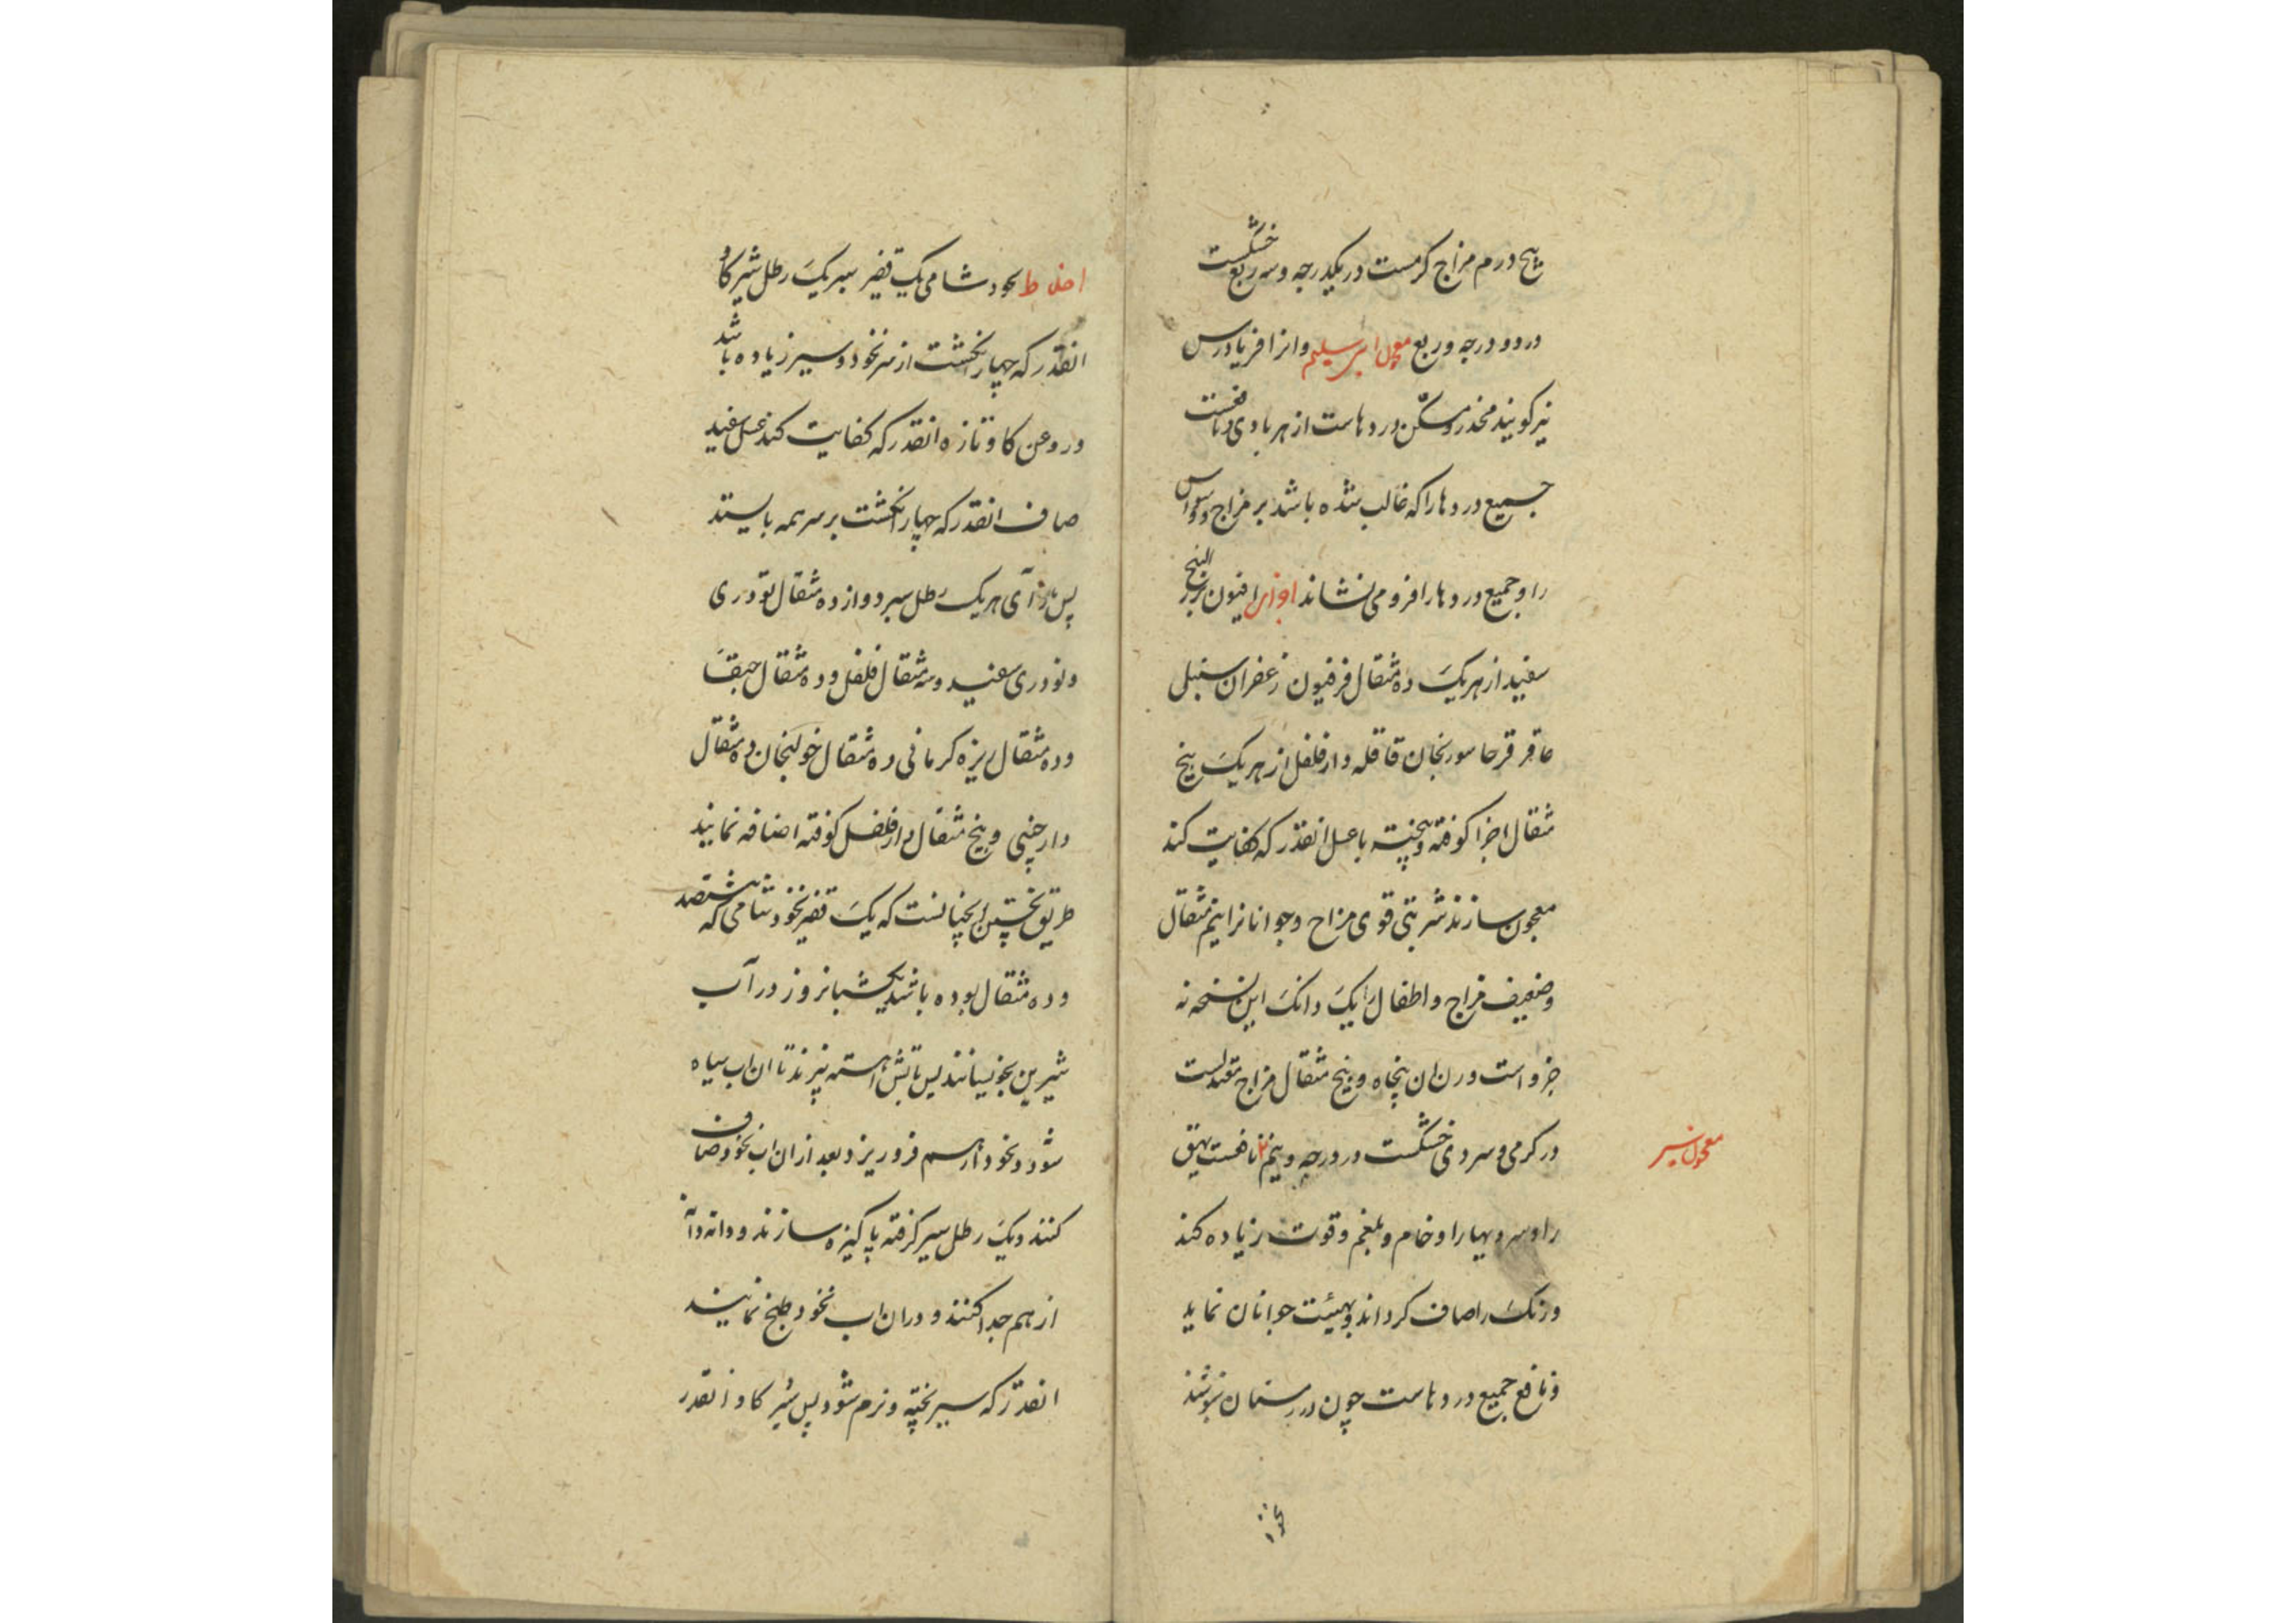 پنج درم مزاج کرمست در یکدرجه و سه ربع خشکست
در دو درجه و ربع معجون ابرسلیم و انرا فریادرس
نیز کویند مخدر و مسکن دردهاست از هر بادی و نافعست
جمیع دردها را که غالب شده باشد بر مزاج و وسواس
را و جمیع دردها را فرو می نشاند اجزای افیون بزر البنج
سفید از هریک ده مثقال فرفیون زعفران سنبل
عاقر قرحا سورنجان قاقله دارفلفل از هریک پنج
مثقال اجزا کوفته و بیخته با عسل انقدر که کفایت کند
معجون سازند شربتی قوی مزاج و جوانانرا نیم مثقال
و ضعیف مزاج و اطفال را یک دانک این نسخه نه
جزو است وزن ان پنجاه و پنج مثقال مزاج معتدلست
در کرمی و سردی خشکست در درجه و نیم نافعست بهق
معجون سیر
را و سردیها را و خام و بلغم و قوت زیاده کند
و رنک را صاف کرداند و بهیئت جوانان نماید
و نافع جمیع دردهاست چون در زمستان بنوشند
اخلاط نخود شامی یک قفیز سیر یک رطل شیر کاو
انقدر که چهار انکشت از سر نخود و سیر زیاده باشد
و روغن کاو تازه انقدر که کفایت کند عسل سفید
صاف انقدر که چهار انکشت بر سر همه بایستد
پس از آی هریک رطل سیر دوازده مثقال تودری
و تودری سفید و سه مثقال فلفل و ده مثقال
و ده مثقال زیره کرمانی ده مثقال خولنجان ده مثقال
دارچینی و پنج مثقال دارفلفل کوفته اضافه نمایند
طریق پختن اینچنانست که یک قفیز نخود شامی که هشتصد
و ده مثقال بوده باشد یکشبانروز در آب
شیرین بخویسانند پس باتش اهسته بپزند تا ان اب سیاه
شود و نخود از هم فرو ریزد بعد از ان اب نخود صاف
کنند و یک رطل سیر کرفته پاکیزه سازند و دانه دانه
از هم جدا کنند و در ان اب نخود طبخ نمایند
انقدر که سیر پخته و نرم شود پس شیر کاو انقدر